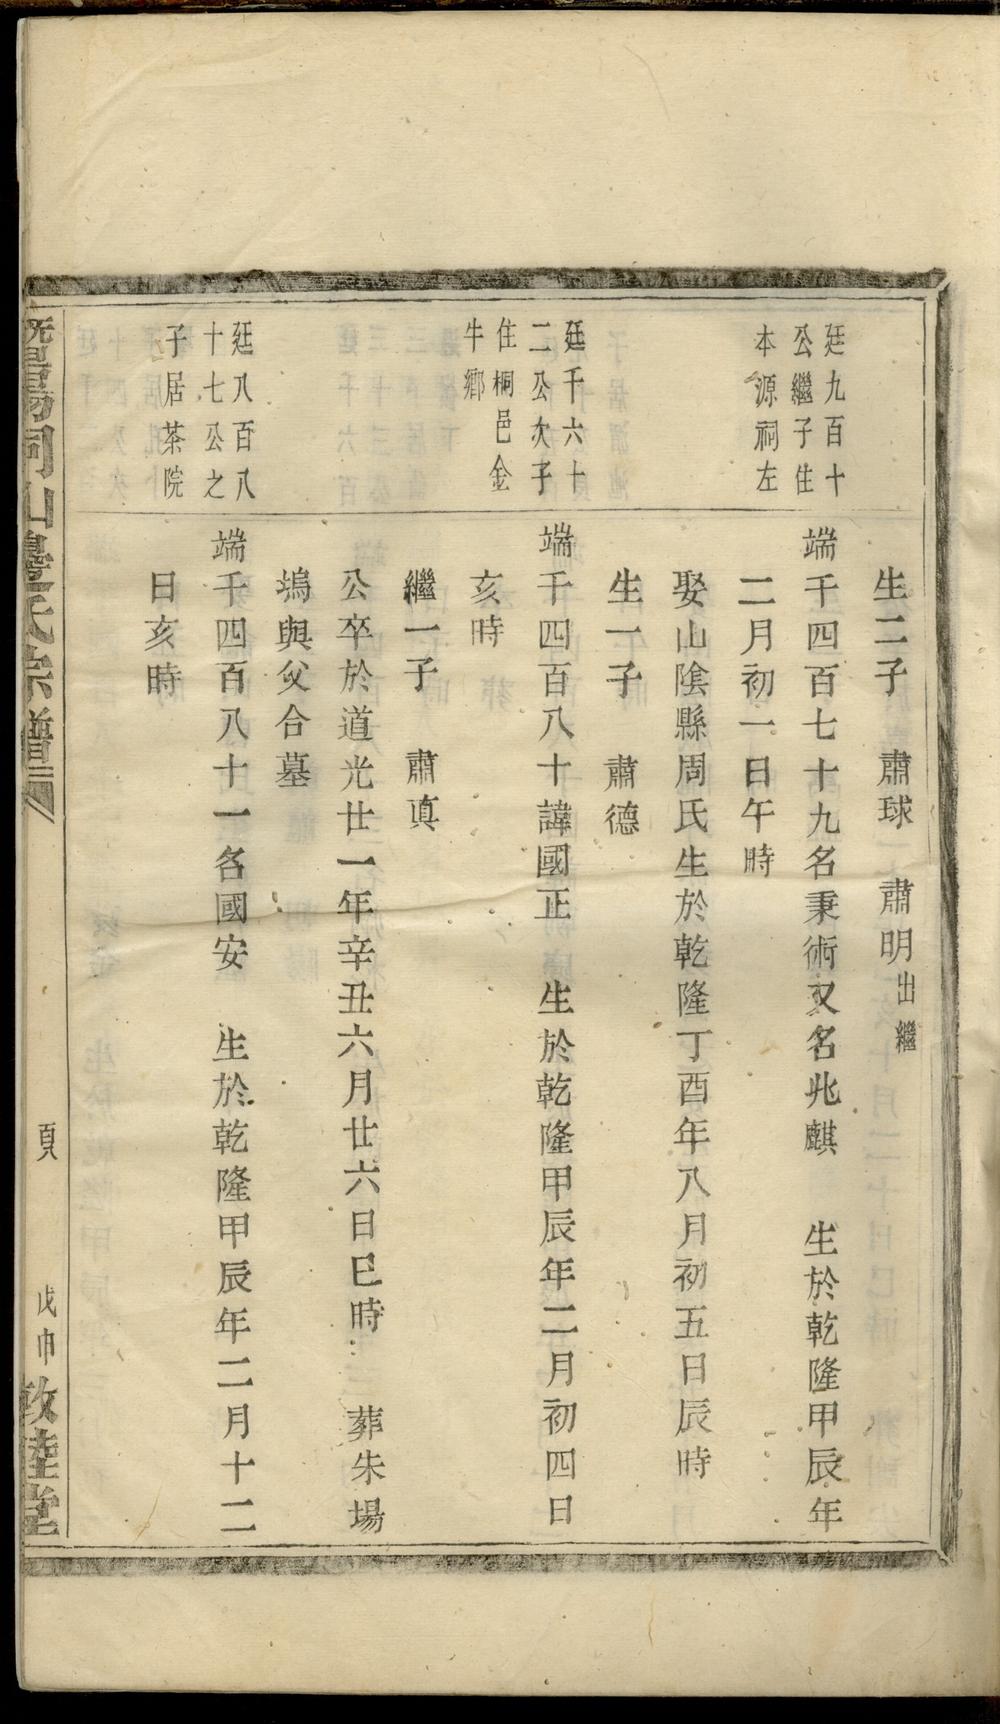 生二子　肅球　肅明出繼
廷九百十
公繼子住
本源祠左
端千四百七十九名秉術又名兆麒　生於乾隆甲辰年
二月初一日午時
娶山陰縣周氏生於乾隆丁酉年八月初五日辰時
生一子　肅德
廷千六十
二公次子
住桐邑金
牛鄉
端千四百八十諱國正　生於乾隆甲辰年二月初四日
亥時
繼一子　肅真
公卒於道光廿一年辛丑六月廿六日巳時　葬朱場
塢與父合墓
廷八百八
十七公之
子居茶院
端千四百八十一名國安　生於乾隆甲辰年二月十二
日亥時
暨陽同山邊氏宗譜
頁
戊申
敦睦堂